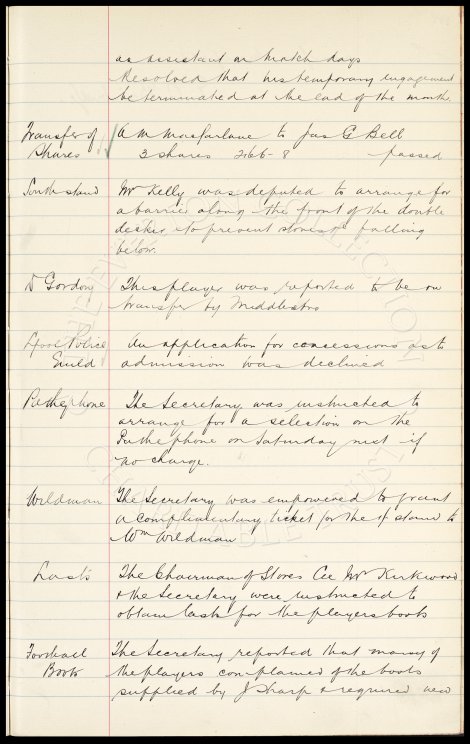 as assistant on match days
Resolved that his temporary engagement
be terminated at the end of the month.
Transfer of A M Macfarlane to Jas G Bell
Shares 3 shares 266-8 passed
South stand Mr Kelly was deputed to arrange for
a barrier along the front of the double
decker to prevent stones falling
below.
D Gordon This player was reported to be on
transfer by Middlesbro
Lpool Police An application for concessions as to
Guild admission was declined
Pathephone The Secretary was instructed to
arrange for a selection on the
Pathephone on Saturday next if
no charge.
Wildman The Secretary was empowered to grant
a complimentary ticket for the stand to
Wm Wildman
Lasts The Chairman of Stores Cee Mr Kirkwood
& the Secretary were instructed to
obtain lasts for the players boots
Football The Secretary reported that many of
Boots the players complained of the boots
supplied by J Sharp & required new
EVERTON COLLECTION
CHARITABLE TRUST